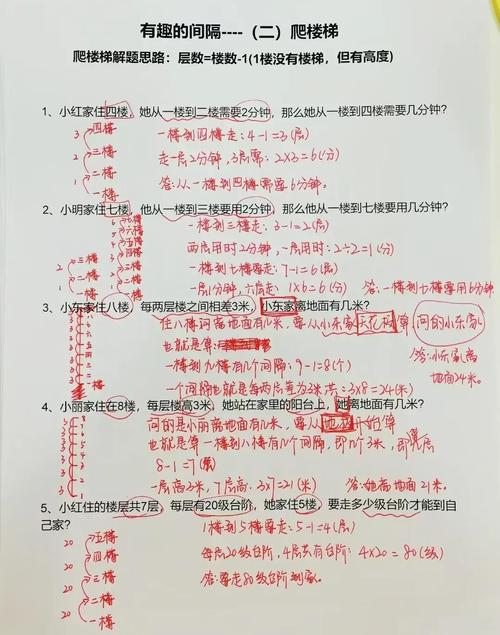 有趣的间隔----（二）爬楼梯
爬楼梯解题思路：层数=楼数-1(1楼没有楼梯，但有高度)
1、小红家住四楼，她从一楼到二楼需要2分钟，那么她从一楼到四楼需要几分钟？
四楼
三楼
二楼
一楼
3
2
1
一楼到四楼走：4-1=3(层)
走一层2分钟，3层需：2×3=6(分)
答：从一楼到四楼需要6分钟。
2、小明家住七楼，他从一楼到三楼要用2分钟，那么他从一楼到七楼要用几分钟？
三楼
二楼
一楼
2
1
七楼
六楼
五楼
四楼
三楼
二楼
一楼
一楼到三楼走：3-1=2(层)
两层用时2分钟，一层用时：2÷2=1(分)
一楼到七楼要走：7-1=6(层)
一层1分钟，六层走：1×6=6(分)
答：一楼到七楼要用6分钟
3、小东家住八楼，每两层楼之间相差3米，小东家离地面有几米？
住八楼问离地面有几米，要从小东家天花板算
问的小东家
也就是算：
一楼到九楼有几个间隔：9-1=8(个)
一个间隔也就是每两层差为3米 共：3×8=24(米)
答：小东家离地面24米。
4、小丽家住在8楼，每层楼高3米，她站在家里的阳台上，她离地面有几米？
问的是小丽离地面有几米，要从地板开始算
也就是算一楼到八楼有几个间隔，即几个3米，即几层
8-1=7(层)
一层高3米，7层高：3×7=21(米)
答：她离地面21米。
5、小红住的楼层共7层，每层有20级台阶，她家住5楼，要走多少级台阶才能到自己家？
五楼
四楼
三楼
二楼
一楼
20
20
20
20
1楼到5楼要走：5-1=4(层)
每层20级台阶，4层共有台阶：4×20=80(级)
答：要走80级台阶到家。